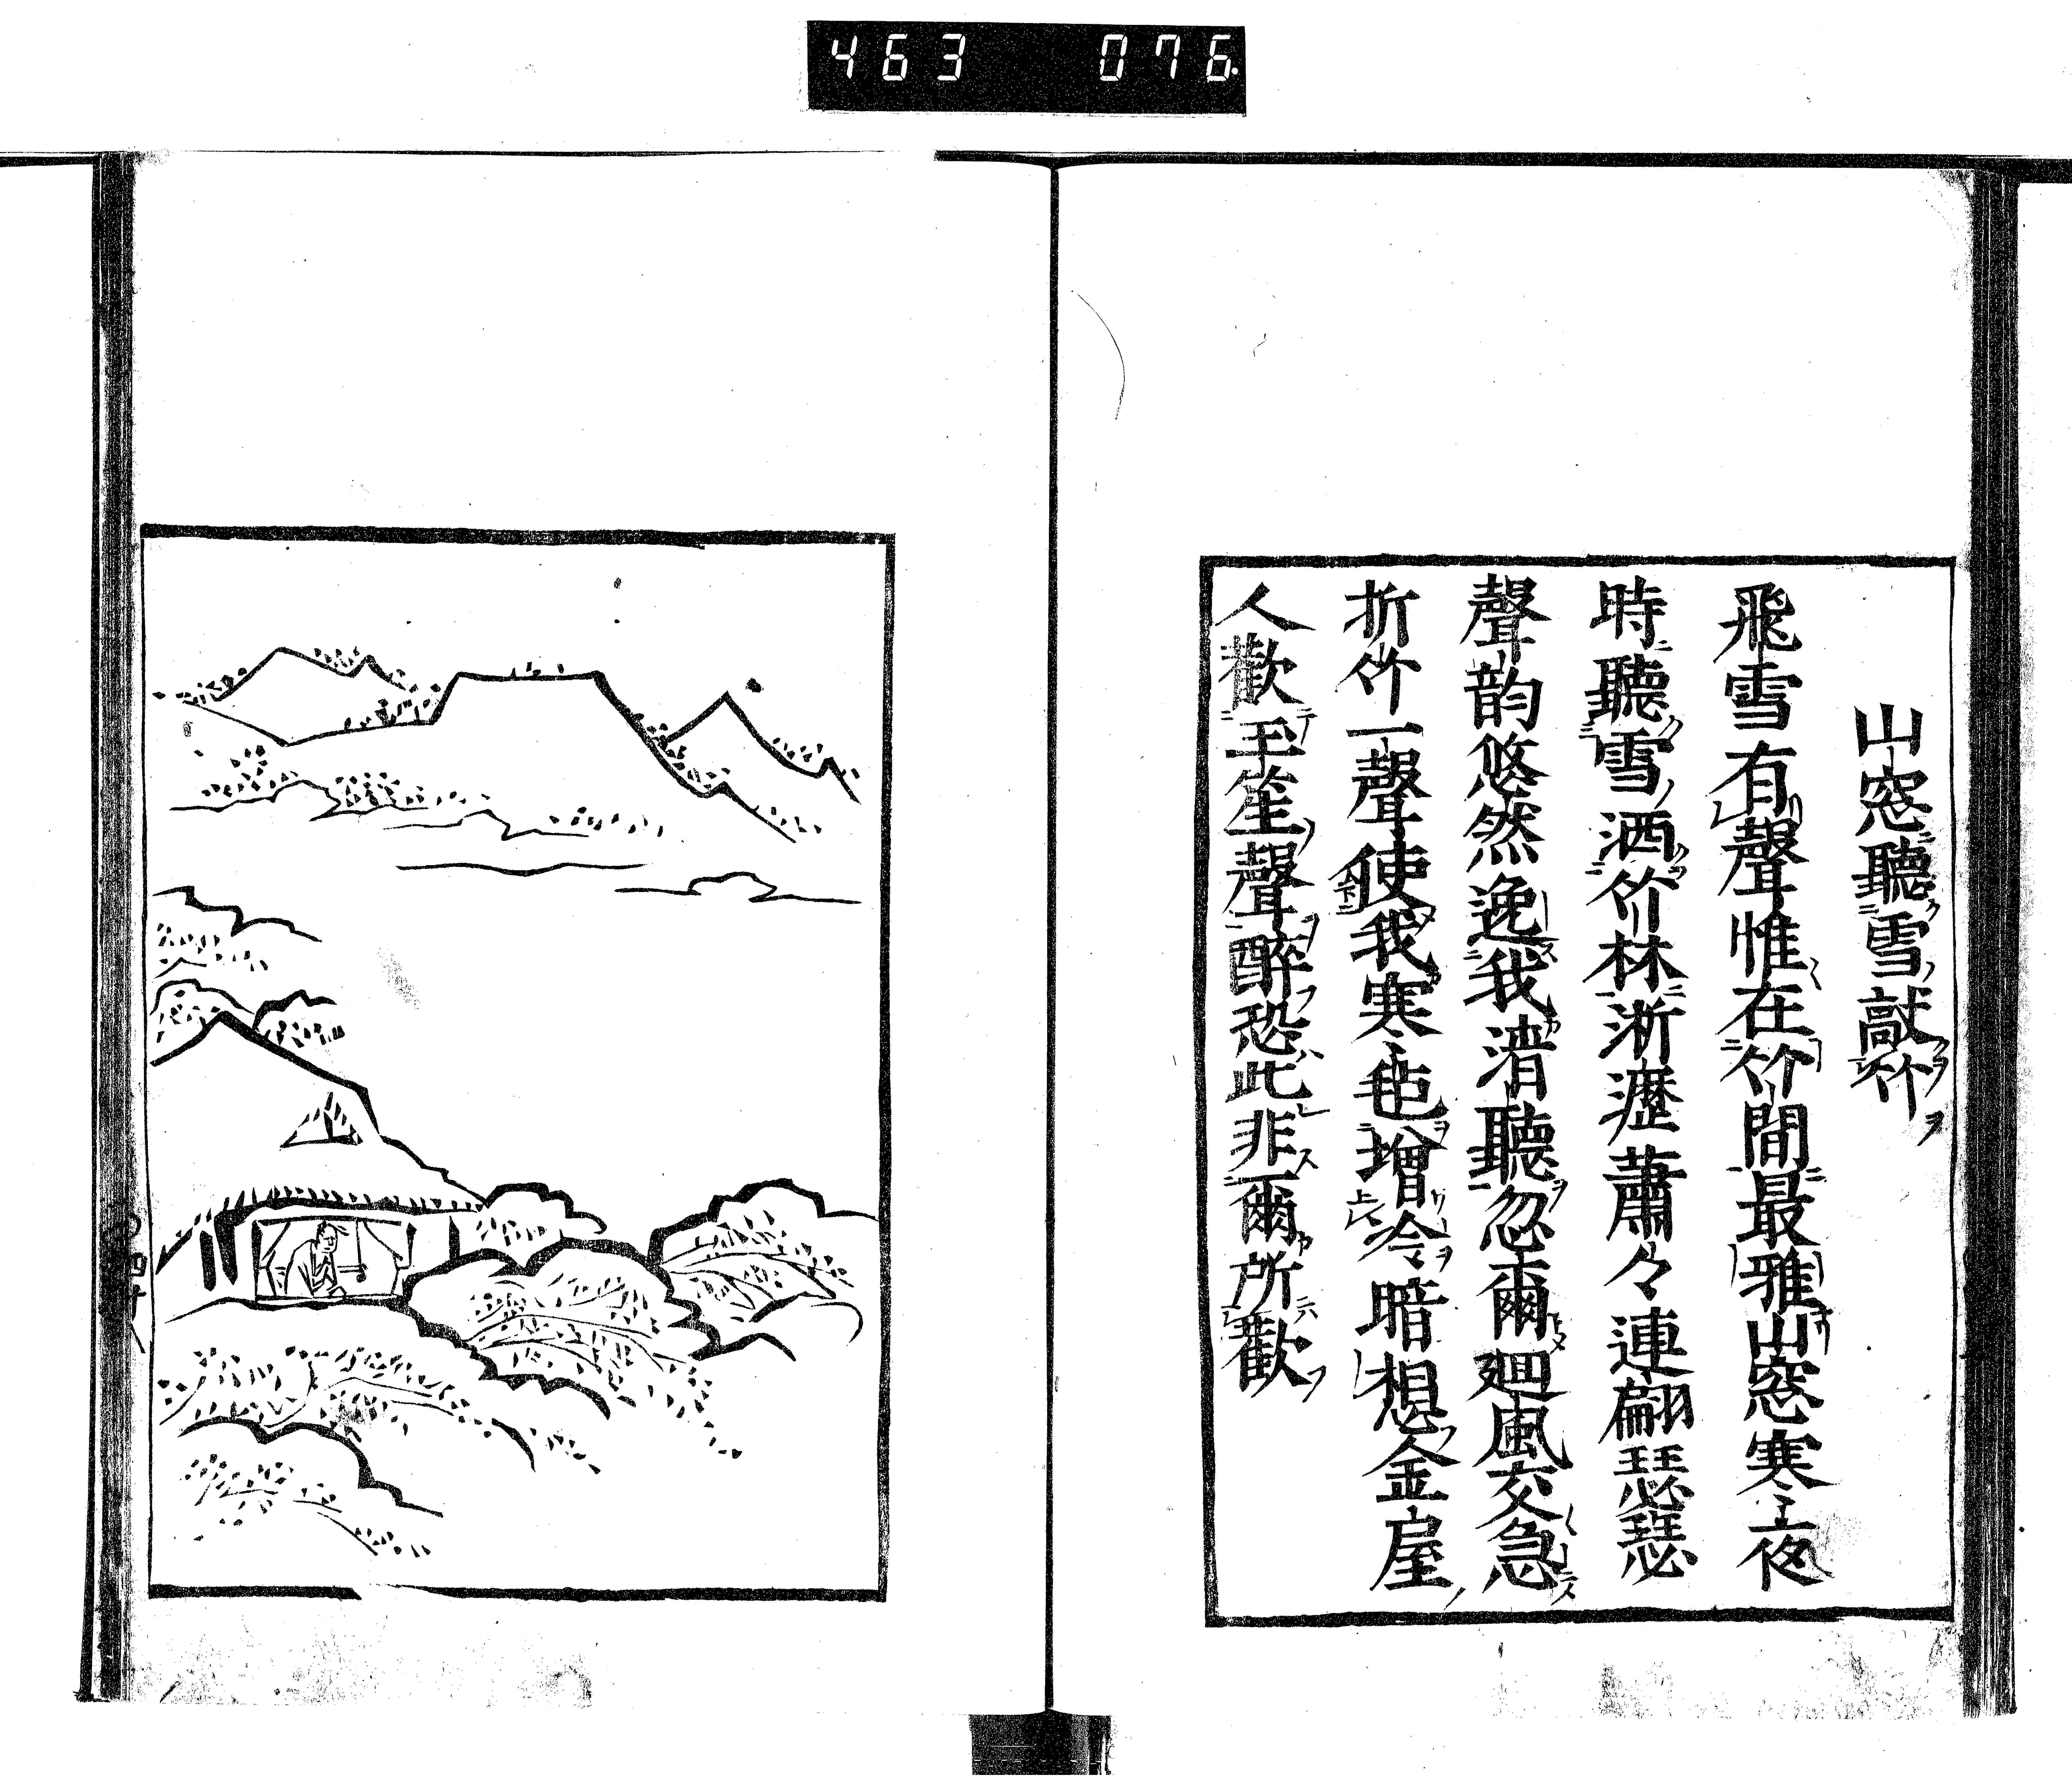 463 076
山窓聽雪敲竹
飛雪有聲惟在竹間最雅山窓寒夜
時聽雪洒竹林淅瀝蕭々連翩瑟瑟
聲韵悠然逸我清聽忽爾廻風交急
折竹一聲使我寒毡增冷暗想金屋
人歡玉笙聲醉恐此非爾所歡